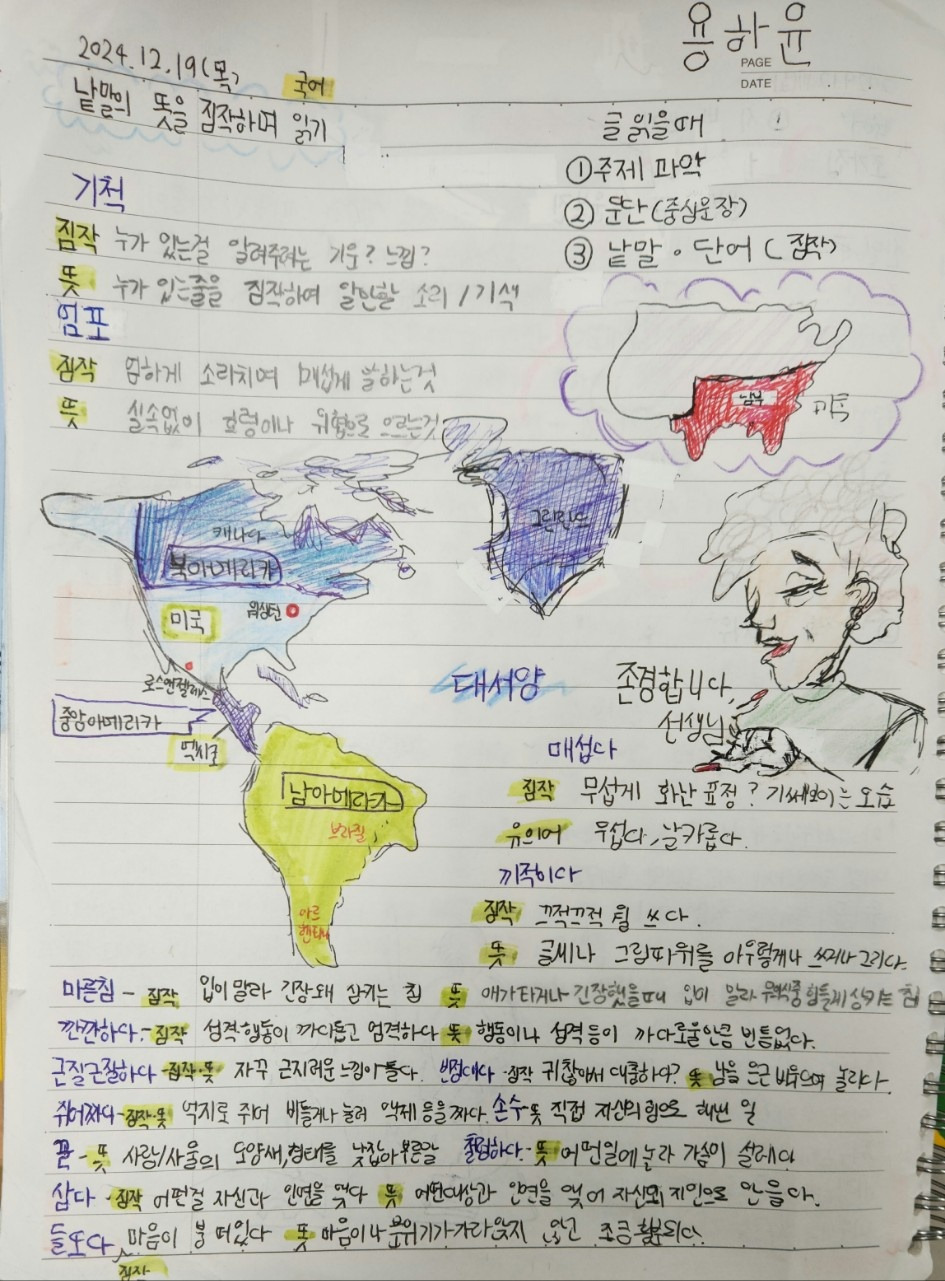 용하윤
PAGE
DATE
2024.12.19(목)
국어
낱말의 뜻을 짐작하며 읽기
글 읽을때
①주제 파악
② 문단(중심문장)
③ 낱말 · 단어 (짐작)
기척
짐작 누가 있는걸 알려주려는 기운? 느낌?
뜻 누가 있는줄을 짐작하여 알만할 소리/기색
엄포
짐작 엄하게 소리치며 매섭게 말하는것
뜻 실속없이 호령이나 위협으로 으르는것
남부
미국
캐나다
북아메리카
그린란드
미국
워싱턴
로스엔젤레스
중앙아메리카
멕시코
대서양
존경합니다,
선생님
남아메리카
브라질
아르
헨티나
매섭다
짐작 무섭게 화난 표정? 기쎄보이는 모습
유의어 무섭다, 날카롭다.
끼적이다
짐작 끄적끄적 뭘 쓰다.
뜻 글씨나 그림따위를 아무렇게나 쓰거나 그리다.
마른침 - 짐작 입이 말라 긴장돼 삼키는 침 뜻 애가타거나 긴장했을때 입이 말라 힘들게 삼키는 침
깐깐하다 - 짐작 성격·행동이 까다롭고 엄격하다 뜻 행동이나 성격 등이 까다로울만큼 빈틈없다.
근질근질하다 - 짐작·뜻 자꾸 근지러운 느낌이 들다. 빈정대다 - 짐작 귀찮아서 대충하다? 뜻 남을 은근 비웃으며 놀리다.
쥐어짜다 - 짐작·뜻 억지로 쥐어 비틀거나 눌러 액체 등을 짜다. 손수 - 뜻 직접 자신의 힘으로 해낸 일
꼴 - 뜻 사람/사물의 모양새, 형태를 낮잡아 부른말 철렁하다 - 뜻 어떤일에 놀라 가슴이 설레다
삼다 - 짐작 어떤걸 자신과 인연을 맺다 뜻 어떤대상과 인연을 맺어 자신의 지인으로 만들다.
들뜨다 짐작 마음이 붕 떠있다 뜻 마음이나 분위기가 가라앉지 않고 조금 흥분되다.